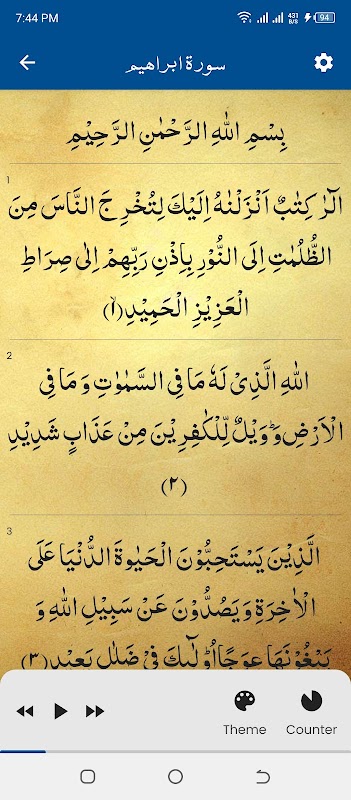 7:44 PM
431 B/S
94
سورة ابراهيم
بِسْمِ اللهِ الرَّحْمٰنِ الرَّحِيْمِ
1
الٓرٰ كِتٰبٌ اَنْزَلْنٰهُ اِلَيْكَ لِتُخْرِجَ النَّاسَ مِنَ
الظُّلُمٰتِ اِلَى النُّوْرِ بِاِذْنِ رَبِّهِمْ اِلٰى صِرَاطِ
الْعَزِيْزِ الْحَمِيْدِ(۱)
2
اللهِ الَّذِیْ لَهٗ مَا فِی السَّمٰوٰتِ وَ مَا فِی
الْاَرْضِ وَ وَیْلٌ لِّلْكٰفِرِیْنَ مِنْ عَذَابٍ شَدِیْدِ
(۲)
3
الَّذِیْنَ یَسْتَحِبُّوْنَ الْحَیٰوةَ الدُّنْیَا عَلَى
الْاٰخِرَةِ وَ یَصُدُّوْنَ عَنْ سَبِیْلِ اللهِ وَ
یَبْغُوْنَهَا عِوَجًا اُولٰٓىٕكَ فِیْ ضَلٰلٍ بَعِیْدٍ(۳)
Theme
Counter